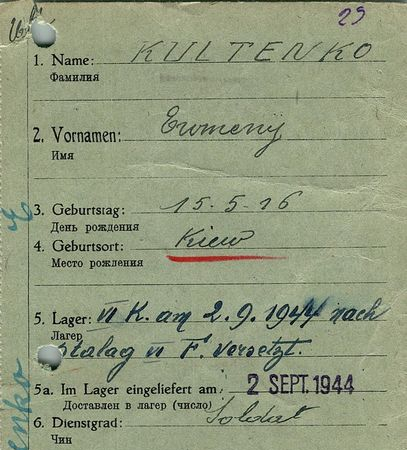 29
1. Name: KULTENKO
Фамилия
2. Vornamen:
Имя
3. Geburtstag: 15.5.16
День рождения
4. Geburtsort: Kiew
Место рождения
5. Lager: VI K. am 2.9.1944 nach
Лагер
Stalag VI F. versetzt.
5a. Im Lager eingeliefert am 2 SEPT. 1944
Доставлен в лагер (число)
6. Dienstgrad: Soldat
Чин